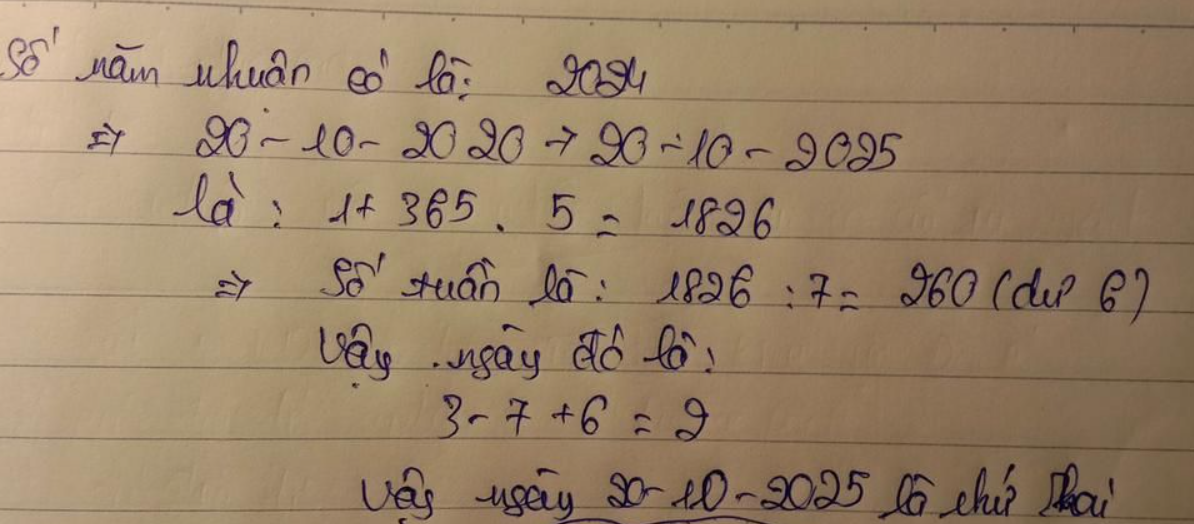 Số năm nhuân có là: 2024
=> 20-10-2020 → 20-10-2025
là: 1+ 365. 5 = 1826
=> Số tuần là: 1826 : 7 = 260 (dư 6)
Vậy ngày đó là:
3-7+6 = 2
Vậy ngày 20-10-2025 là thứ Hai